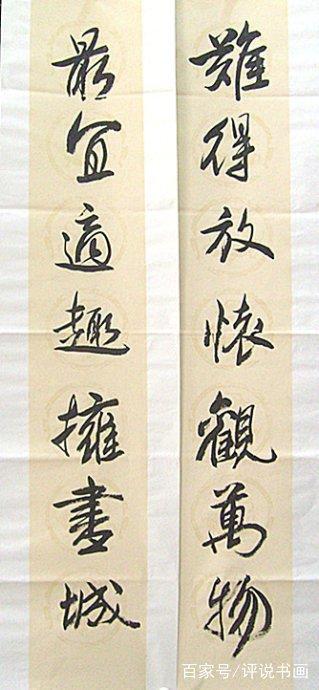 難得放懷觀萬物
最宜適趣擁書城
百家号/评说书画